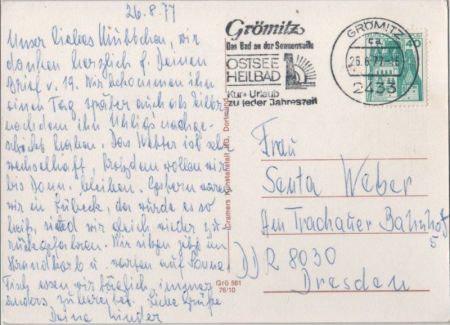 26.8.77
Unser liebes Muttchen, wir
danken herzlich f. Deinen
Brief v. 19. Wir bekommen ihn
einen Tag später auch als hier
nachdem ihn
schickt haben. Das Wetter ist sehr
wechselhaft, trotzdem wollen wir
bis Donn. bleiben. Gestern waren
wir in Lübeck, da wurde es so
heiß, sind wir gleich wieder zu-
rückgefahren. Wir sitzen jetzt im
Strandkorb u. warten auf Sonne.
Fisch essen wir täglich, immer
anders zubereitet. Liebe Grüße
Deine Kinder
Grömitz
Das Bad an der Sonnenseite
OSTSEE
HEILBAD
Kur + Urlaub
zu jeder Jahreszeit
GRÖMITZ
ca
26.8.77-16
2433
40
Cramers Kunstanstalt KG, Dortmund
Grö 561
76/10
Frau
Santa Weber
Am Trachauer Bahnhof
5
DDR 8030
Dresden